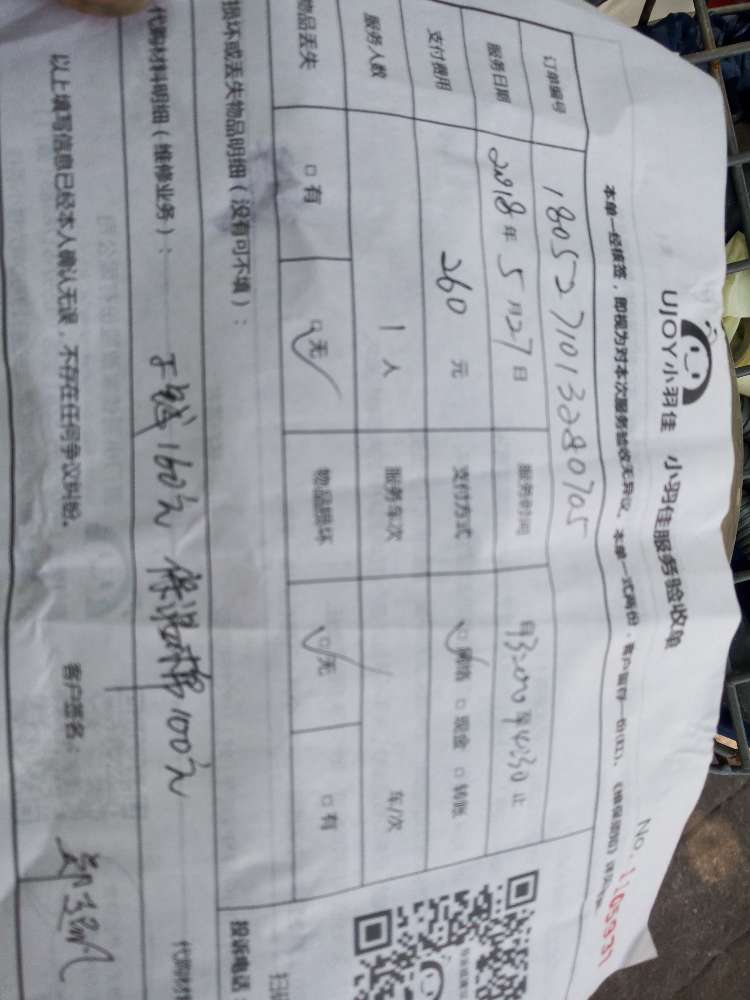 No. 11059371
UJOY小羽佳 小羽佳服务验收单
本单一经核签，即视为对本次服务验收无异议。本单一式两份，客户留存一份(红)，
订单编号 180527101328 0705
服务日期 2018年5月27日 服务时间 自13:00至14:30止
支付费用 260 元 支付方式 ☑网络 □现金 □转账
服务人数 1人 服务车次 车/次
物品丢失 □有 ☑无 物品损坏 ☑无 □有
损坏或丢失物品明细（没有可不填）：
投诉电话：
代购材料明细（维修业务）： 160元 保温棉100元
代购材
以上填写信息已经本人确认无误，不存在任何争议纠纷。 客户签名：